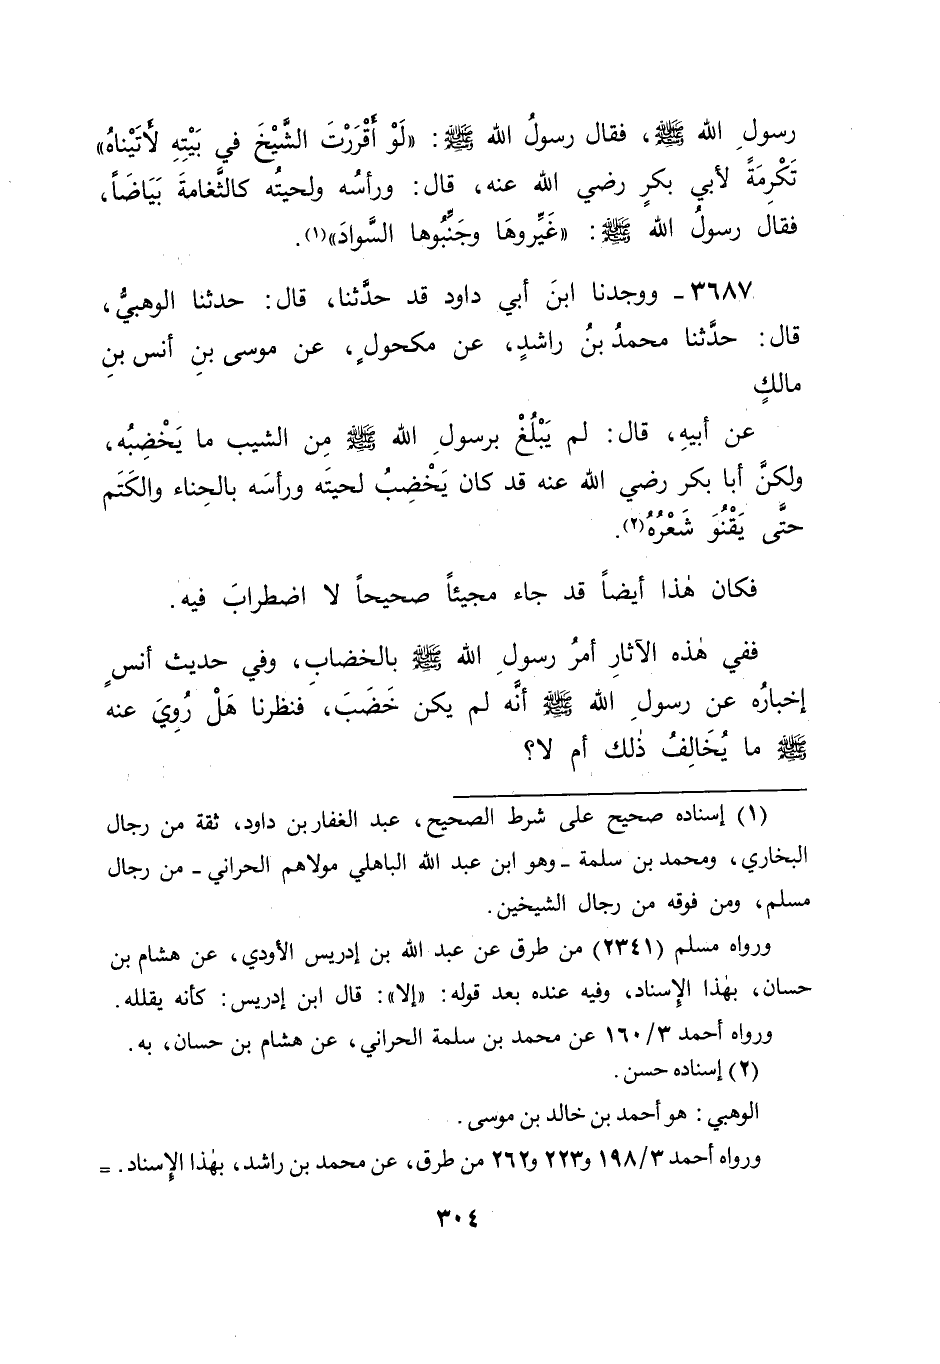 رسولِ الله ﷺ، فقال رسولُ الله ﷺ: «لَوْ أَقْرَرْتَ الشَّيْخَ في بَيْتِهِ لأَتَيْناهُ»
تَكْرِمَةً لأبي بكرٍ رضي الله عنه، قال: ورأسُه ولحيتُه كالثَّغامةَ بَيَاضَاً،
فقال رسولُ الله ﷺ: «غَيِّروهَا وجَنِّبُوها السَّوادَ»(١).
٣٦٨٧ ـ ووجدنا ابنَ أبي داود قد حدَّثنا، قال: حدثنا الوهبيُّ،
قال: حدَّثنا محمدُ بنُ راشدٍ، عن مكحولٍ، عن موسى بنِ أنس بنِ
مالكٍ
عن أبيهِ، قال: لم يَبْلُغْ برسولِ الله ﷺ مِن الشيب ما يَخْضِبُه،
ولكنَّ أبا بكر رضي الله عنه قد كان يَخْضِبُ لحيتَه ورأسَه بالحِناء والكَتَم
حتَّى يَقْنُوَ شَعْرُهُ(٢).
فكان هٰذا أيضاً قد جاء مجيئاً صحيحاً لا اضطرابَ فيه.
ففي هٰذه الآثارِ أمرُ رسولِ الله ﷺ بالخضابِ، وفي حديث أنسٍ
إخبارُه عن رسولِ الله ﷺ أنَّه لم يكن خَضَبَ، فنظرنا هَلْ رُوِيَ عنه
ﷺ ما يُخَالِفُ ذٰلك أم لا؟
(١) إسناده صحيح على شرط الصحيح، عبد الغفار بن داود، ثقة من رجال
البخاري، ومحمد بن سلمة ـ وهو ابن عبد الله الباهلي مولاهم الحراني ـ من رجال
مسلم، ومن فوقه من رجال الشيخين.
ورواه مسلم (٢٣٤١) من طرق عن عبد الله بن إدريس الأودي، عن هشام بن
حسان، بهٰذا الإسناد، وفيه عنده بعد قوله: «إلا»: قال ابن إدريس: كأنه يقلله.
ورواه أحمد ٣/١٦٠ عن محمد بن سلمة الحراني، عن هشام بن حسان، به.
(٢) إسناده حسن.
الوهبي: هو أحمد بن خالد بن موسى.
ورواه أحمد ٣/١٩٨ و٢٢٣ و٢٦٢ من طرق، عن محمد بن راشد، بهٰذا الإسناد. =
٣٠٤